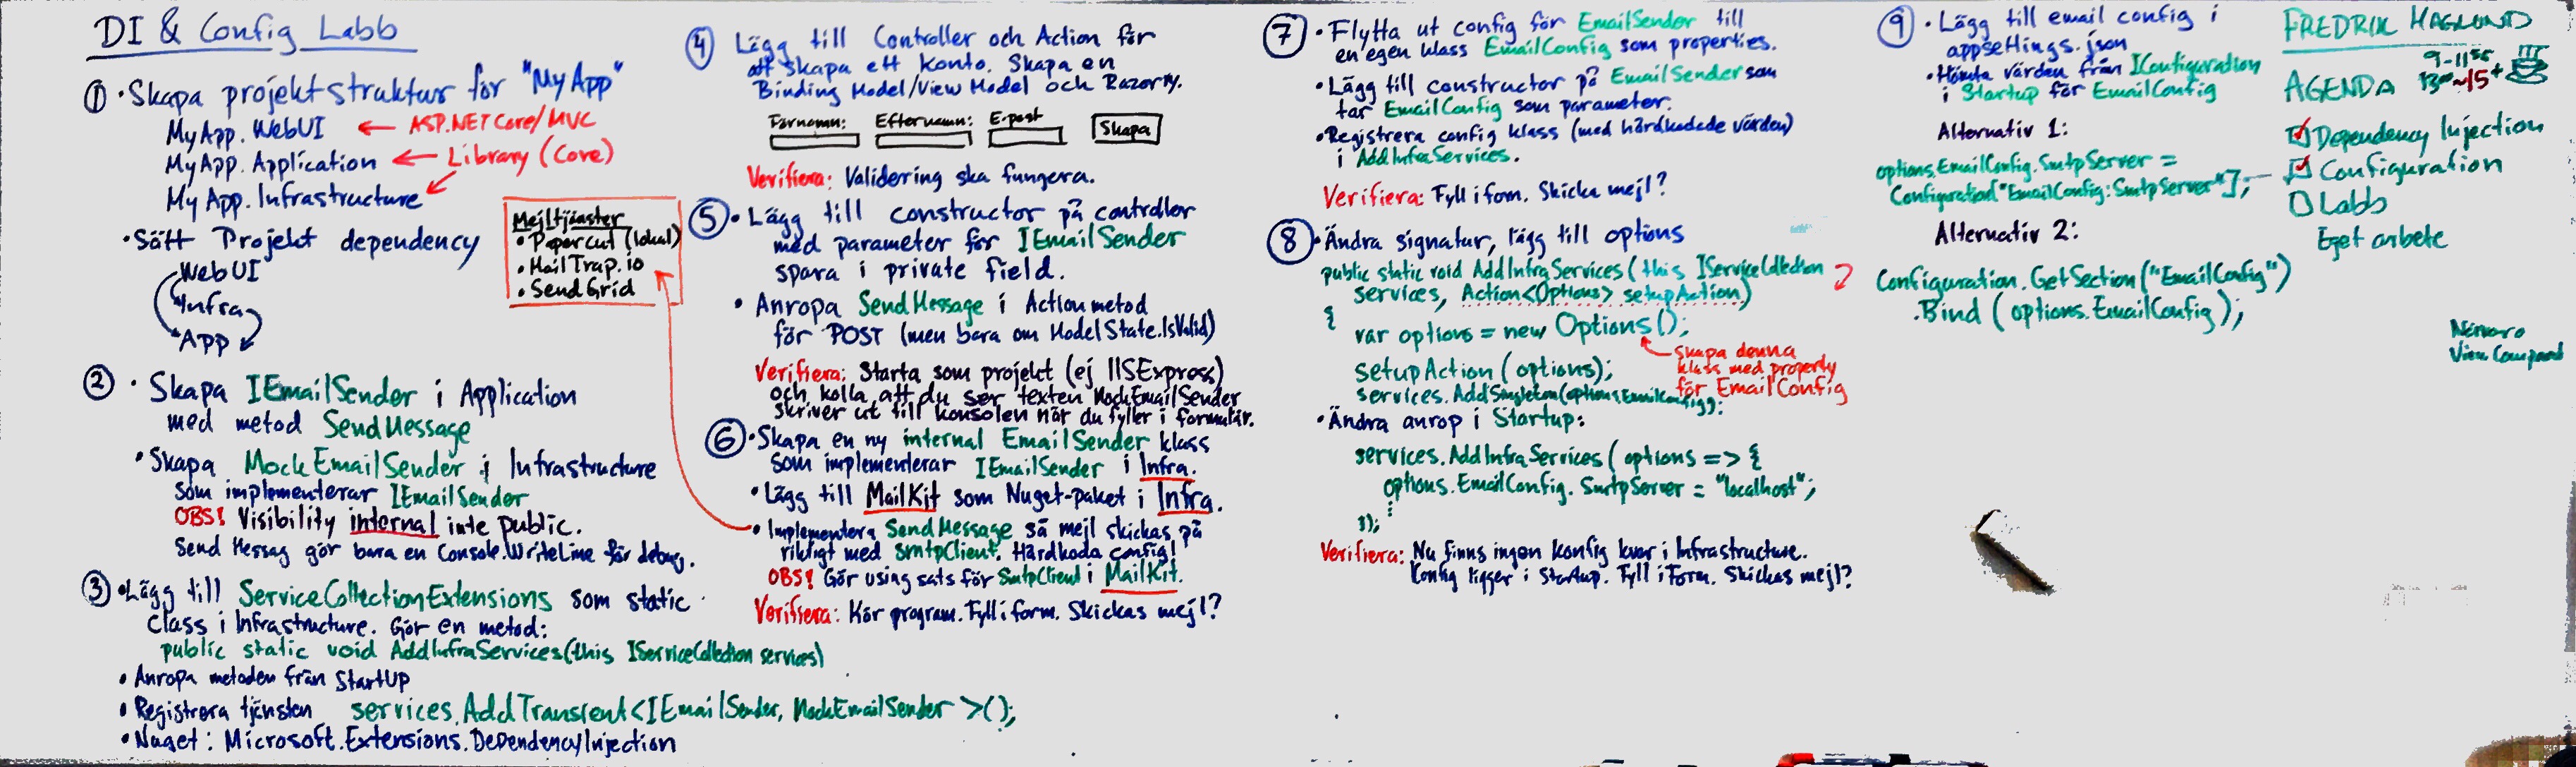 DI & Config Labb
① • Skapa projektstruktur för "MyApp"
MyApp.WebUI ← ASP.NET Core/MVC
MyApp.Application ← Library (Core)
MyApp.Infrastructure
• Sätt Projekt dependency
WebUI
Infra
App
② • Skapa IEmailSender i Application
med metod SendMessage
• Skapa MockEmailSender i Infrastructure
som implementerar IEmailSender
OBS! Visibility internal inte public.
Send Messag gör bara en Console.WriteLine för debug.
③ • Lägg till ServiceCollectionExtensions som static
class i Infrastructure. Gör en metod:
public static void AddInfraServices(this IServiceCollection services)
• Anropa metoden från StartUp
• Registrera tjänsten services.AddTransient<IEmailSender, MockEmailSender>();
• Nuget: Microsoft.Extensions.DependencyInjection
Mejltjänster
• Papercut (lokal)
• MailTrap.io
• SendGrid
④ Lägg till Controller och Action för
att skapa ett konto. Skapa en
Binding Model/View Model och Razorty.
Förnamn: Efternamn: E-post Skapa
Verifiera: Validering ska fungera.
⑤ • Lägg till constructor på controller
med parameter för IEmailSender
spara i private field.
• Anropa SendMessage i Actionmetod
för POST (men bara om ModelState.IsValid)
Verifiera: Starta som projekt (ej IISExpress)
och kolla att du ser texten MockEmailSender
skriver ut till konsolen när du fyller i formulär.
⑥ • Skapa en ny internal EmailSender klass
som implementerar IEmailSender i Infra.
• Lägg till MailKit som Nuget-paket i Infra.
• Implementera SendMessage så mejl skickas på
riktigt med smtpClient. Hårdkoda config!
OBS! Gör using sats för SmtpClient i MailKit.
Verifiera: Kör program. Fyll i form. Skickas mejl?
⑦ • Flytta ut config för EmailSender till
en egen klass EmailConfig som properties.
• Lägg till constructor på EmailSender som
tar EmailConfig som parameter.
• Registrera config klass (med hårdkodade värden)
i AddInfraServices.
Verifiera: Fyll i form. Skicka mejl?
⑧ • Ändra signatur, lägg till options
public static void AddInfraServices(this IServiceCollection
services, Action<Options> setupAction)
{
var options = new Options();
setupAction(options);
services.AddSingleton(options.EmailConfig);
skapa denna
klass med property
för EmailConfig
• Ändra anrop i Startup:
services.AddInfraServices(options => {
options.EmailConfig.SmtpServer = "localhost";
⋮
});
Verifiera: Nu finns ingen konfig kvar i Infrastructure.
Config ligger i Startup. Fyll i Form. Skickas mejl?
⑨ • Lägg till email config i
appsettings.json
• Hämta värden från IConfiguration
i Startup för EmailConfig
Alternativ 1:
options.EmailConfig.SmtpServer =
Configuration["EmailConfig:SmtpServer"];
Alternativ 2:
Configuration.GetSection("EmailConfig")
.Bind(options.EmailConfig);
FREDRIK HAGLUND
AGENDA
9-11
Dependency Injection
Configuration
Labb
Eget arbete